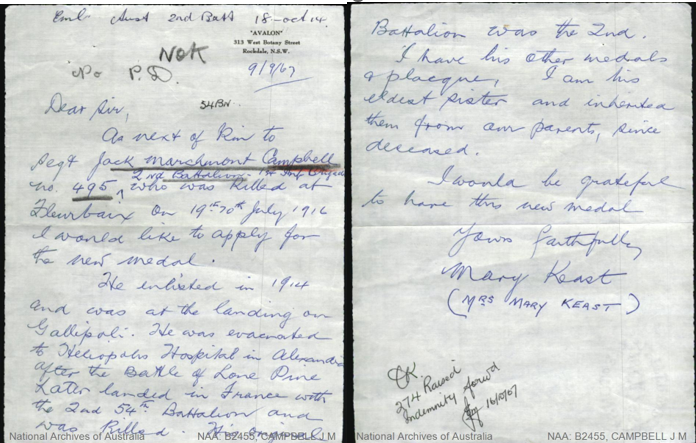 Emb Aust 2nd Batt 18-oct 14.
"AVALON"
313 West Botany Street
Rockdale, N.S.W.
NOK
No P.D.
9/9/67
54 BN
Dear Sir,
As next of kin to
Segt Jack Marchmont Campbell
2nd Battalion - 1st Inf Brigade
no. 495 ^ who was killed at
Fleurbaix on 19th 20th July 1916
I would like to apply for
the new medal.
He enlisted in 1914
and was at the landing on
Gallipoli. He was evacuated
to Heliopolis Hospital in Alexandria
after the Battle of Lone Pine
Later landed in France with
the 2nd 54th Battalion and
was killed.
National Archives of Australia
NAA: B2455, CAMPBELL J M
Battalion was the 2nd.
I have his other medals
& placque, I am his
eldest sister and inherited
them from our parents, since
deceased.
I would be grateful
to have this new medal
Yours faithfully
Mary Keast
(MRS MARY KEAST)
274 Raised
Indemnity forwd
16/10/67
National Archives of Australia
NAA: B2455, CAMPBELL J M